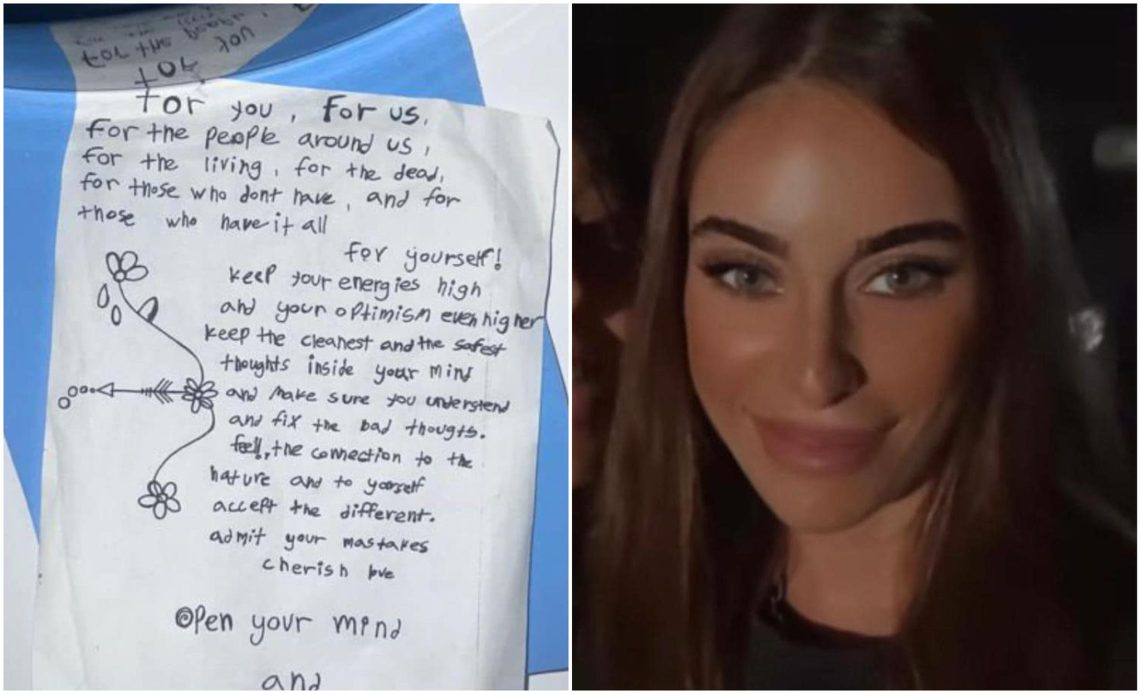 for the people
for you
for
for you, for us,
for the people around us,
for the living, for the dead,
for those who dont have, and for
those who have it all
for yourself!
keep your energies high
and your optimism even higher
keep the cleanest and the safest
thoughts inside your mind
and make sure you understend
and fix the bad thougts.
feel, the connection to the
nature and to yourself
accept the different.
admit your mastakes
cherish love
open your mind
and